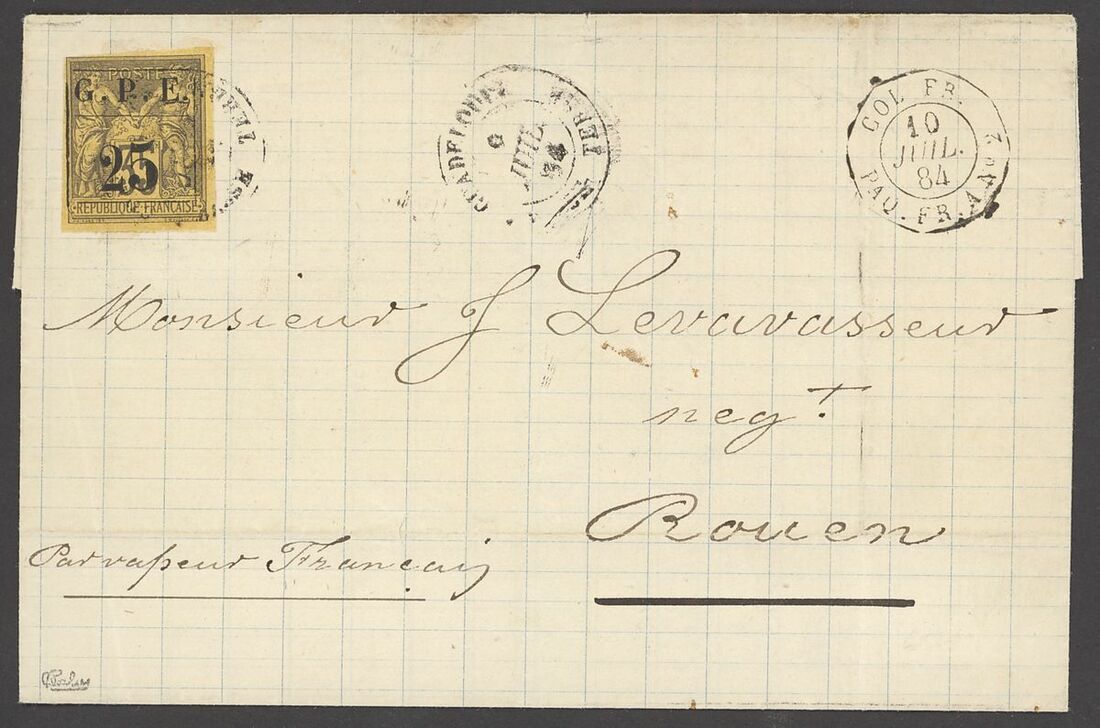 POSTES
G. P. E.
25
RÉPUBLIQUE FRANÇAISE
GUADELOUPE
JUIL.
84
COL. FR.
10
JUIL.
84
PAQ. FR. A Nº 2
Monsieur J Levavasseur
negt.
Rouen
Par vapeur Français